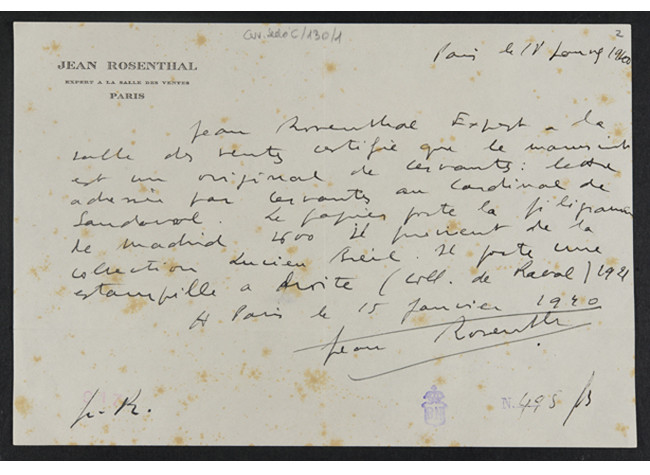 Cerv. Sedó C/130/1
2
JEAN ROSENTHAL
EXPERT A LA SALLE DES VENTES
PARIS
Paris le
Jean Rosenthal Expert a la
salle des ventes certifie que le manuscrit
est un original de Cervantes : lettre
adressée par Cervantes au Cardinal de
Sandoval. Le papier porte la filigrane
de Madrid 1600 Il provient de la
collection Lucien Il porte une
estampille a droite (Coll. de Raval) 1921
A Paris le 15 Janvier 1940
Jean Rosenth
J. R.
N. 495